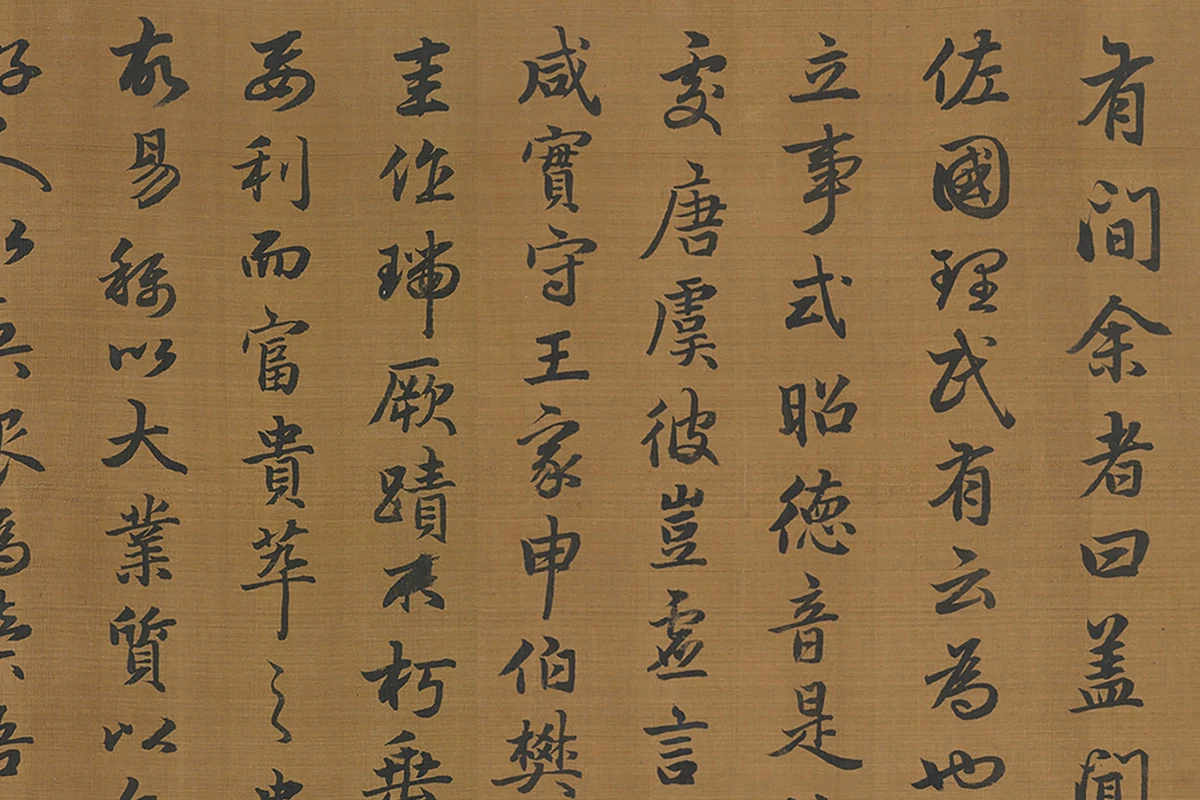 有間余者曰盖聞
佐國理民有云為也
立事式昭德音是
唐虞彼豈虚言
咸實守王家申伯樊
圭作瑞厥蹟不朽垂
要利而富貴萃之
故易稱以大業質以